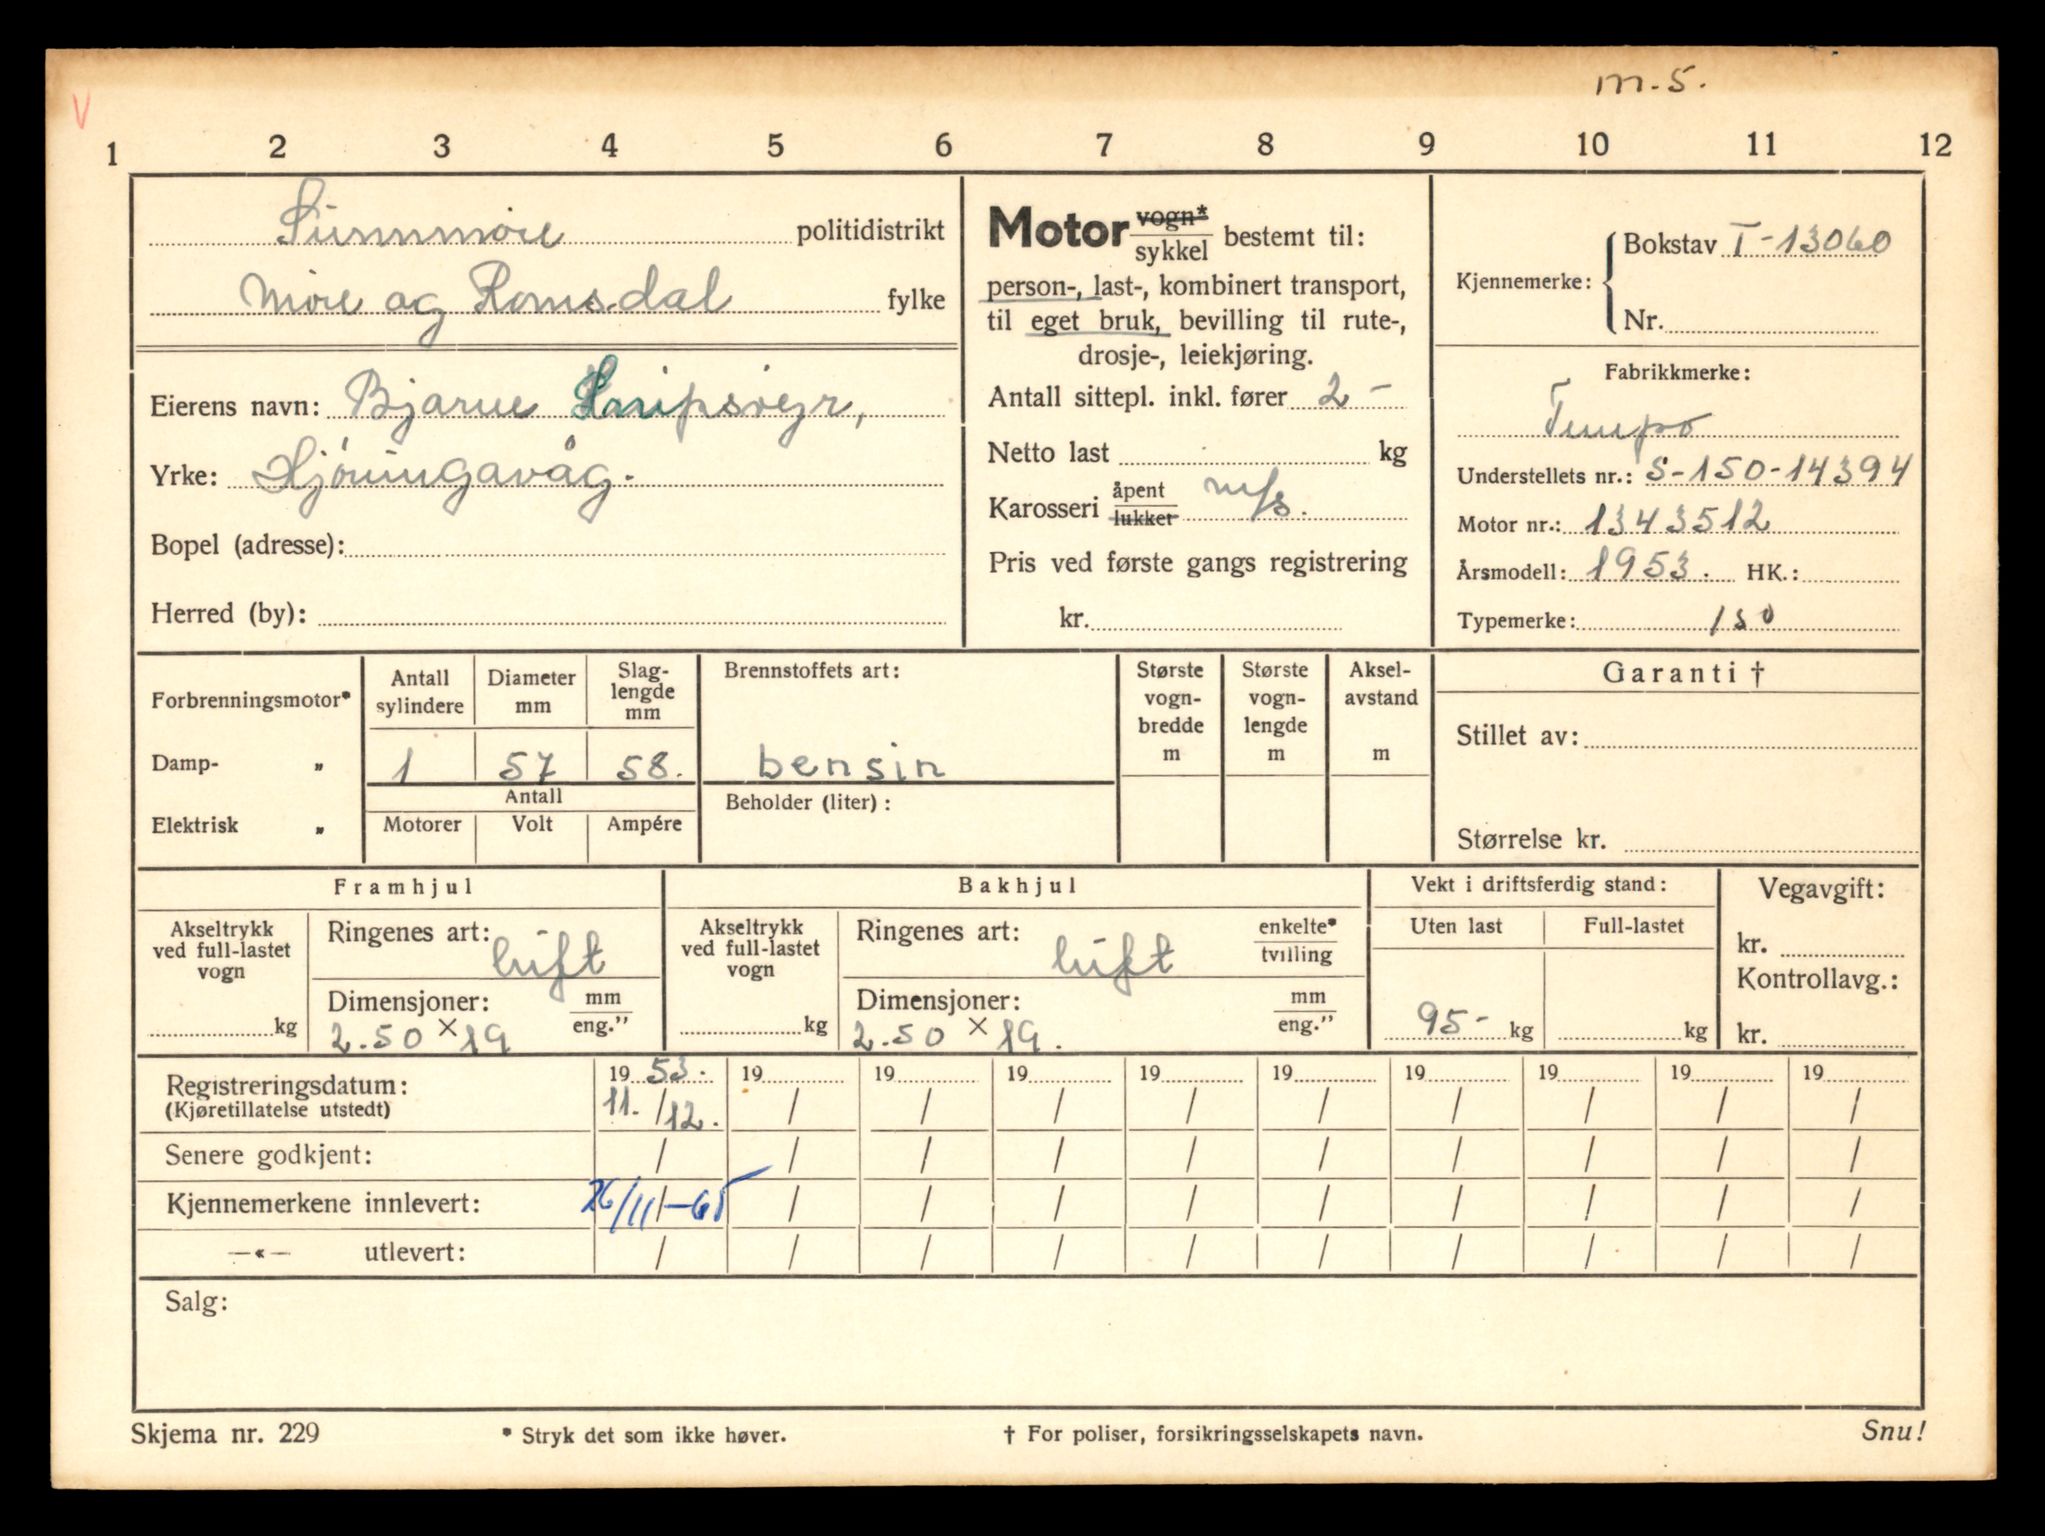 m.5.
V
1 2 3 4 5 6 7 8 9 10 11 12
Sunnmøre politidistrikt
Møre og Romsdal fylke
Eierens navn: Bjarne Snipsøyr,
Yrke: Hjørungavåg.
Bopel (adresse):
Herred (by):
Motor vogn*/sykkel bestemt til:
person-, last-, kombinert transport,
til eget bruk, bevilling til rute-,
drosje-, leiekjøring.
Antall sittepl. inkl. fører 2 -
Netto last kg
Karosseri åpent/lukket m/s.
Pris ved første gangs registrering
kr.
Kjennemerke: Bokstav T-13060
Nr.
Fabrikkmerke:
Tempo
Understellets nr.: S-150-14394
Motor nr.: 1343512
Årsmodell: 1953. HK.:
Typemerke: 150
Forbrenningsmotor*
Damp- „
Elektrisk „
Antall sylindere
1
Diameter mm
57
Slag-lengde mm
58.
Antall
Motorer Volt Ampére
Brennstoffets art:
bensin
Beholder (liter):
Største vogn-bredde m
Største vogn-lengde m
Aksel-avstand m
Garanti †
Stillet av:
Størrelse kr.
Framhjul
Akseltrykk ved full-lastet vogn
kg
Ringenes art: luft
Dimensjoner: mm/eng."
2.50 × 19
Bakhjul
Akseltrykk ved full-lastet vogn
kg
Ringenes art: luft enkelte*/tvilling
Dimensjoner: mm/eng."
2.50 × 19.
Vekt i driftsferdig stand:
Uten last Full-lastet
95- kg kg
Vegavgift:
kr.
Kontrollavg.:
kr.
Registreringsdatum: 19 53. 19 19 19 19 19 19 19 19 19
(Kjøretillatelse utstedt) 11./12. / / / / / / / / /
Senere godkjent: / / / / / / / / / /
Kjennemerkene innlevert: 26/11-65 / / / / / / / / /
—«— utlevert: / / / / / / / / / /
Salg:
Skjema nr. 229 * Stryk det som ikke høver. † For poliser, forsikringsselskapets navn. Snu!